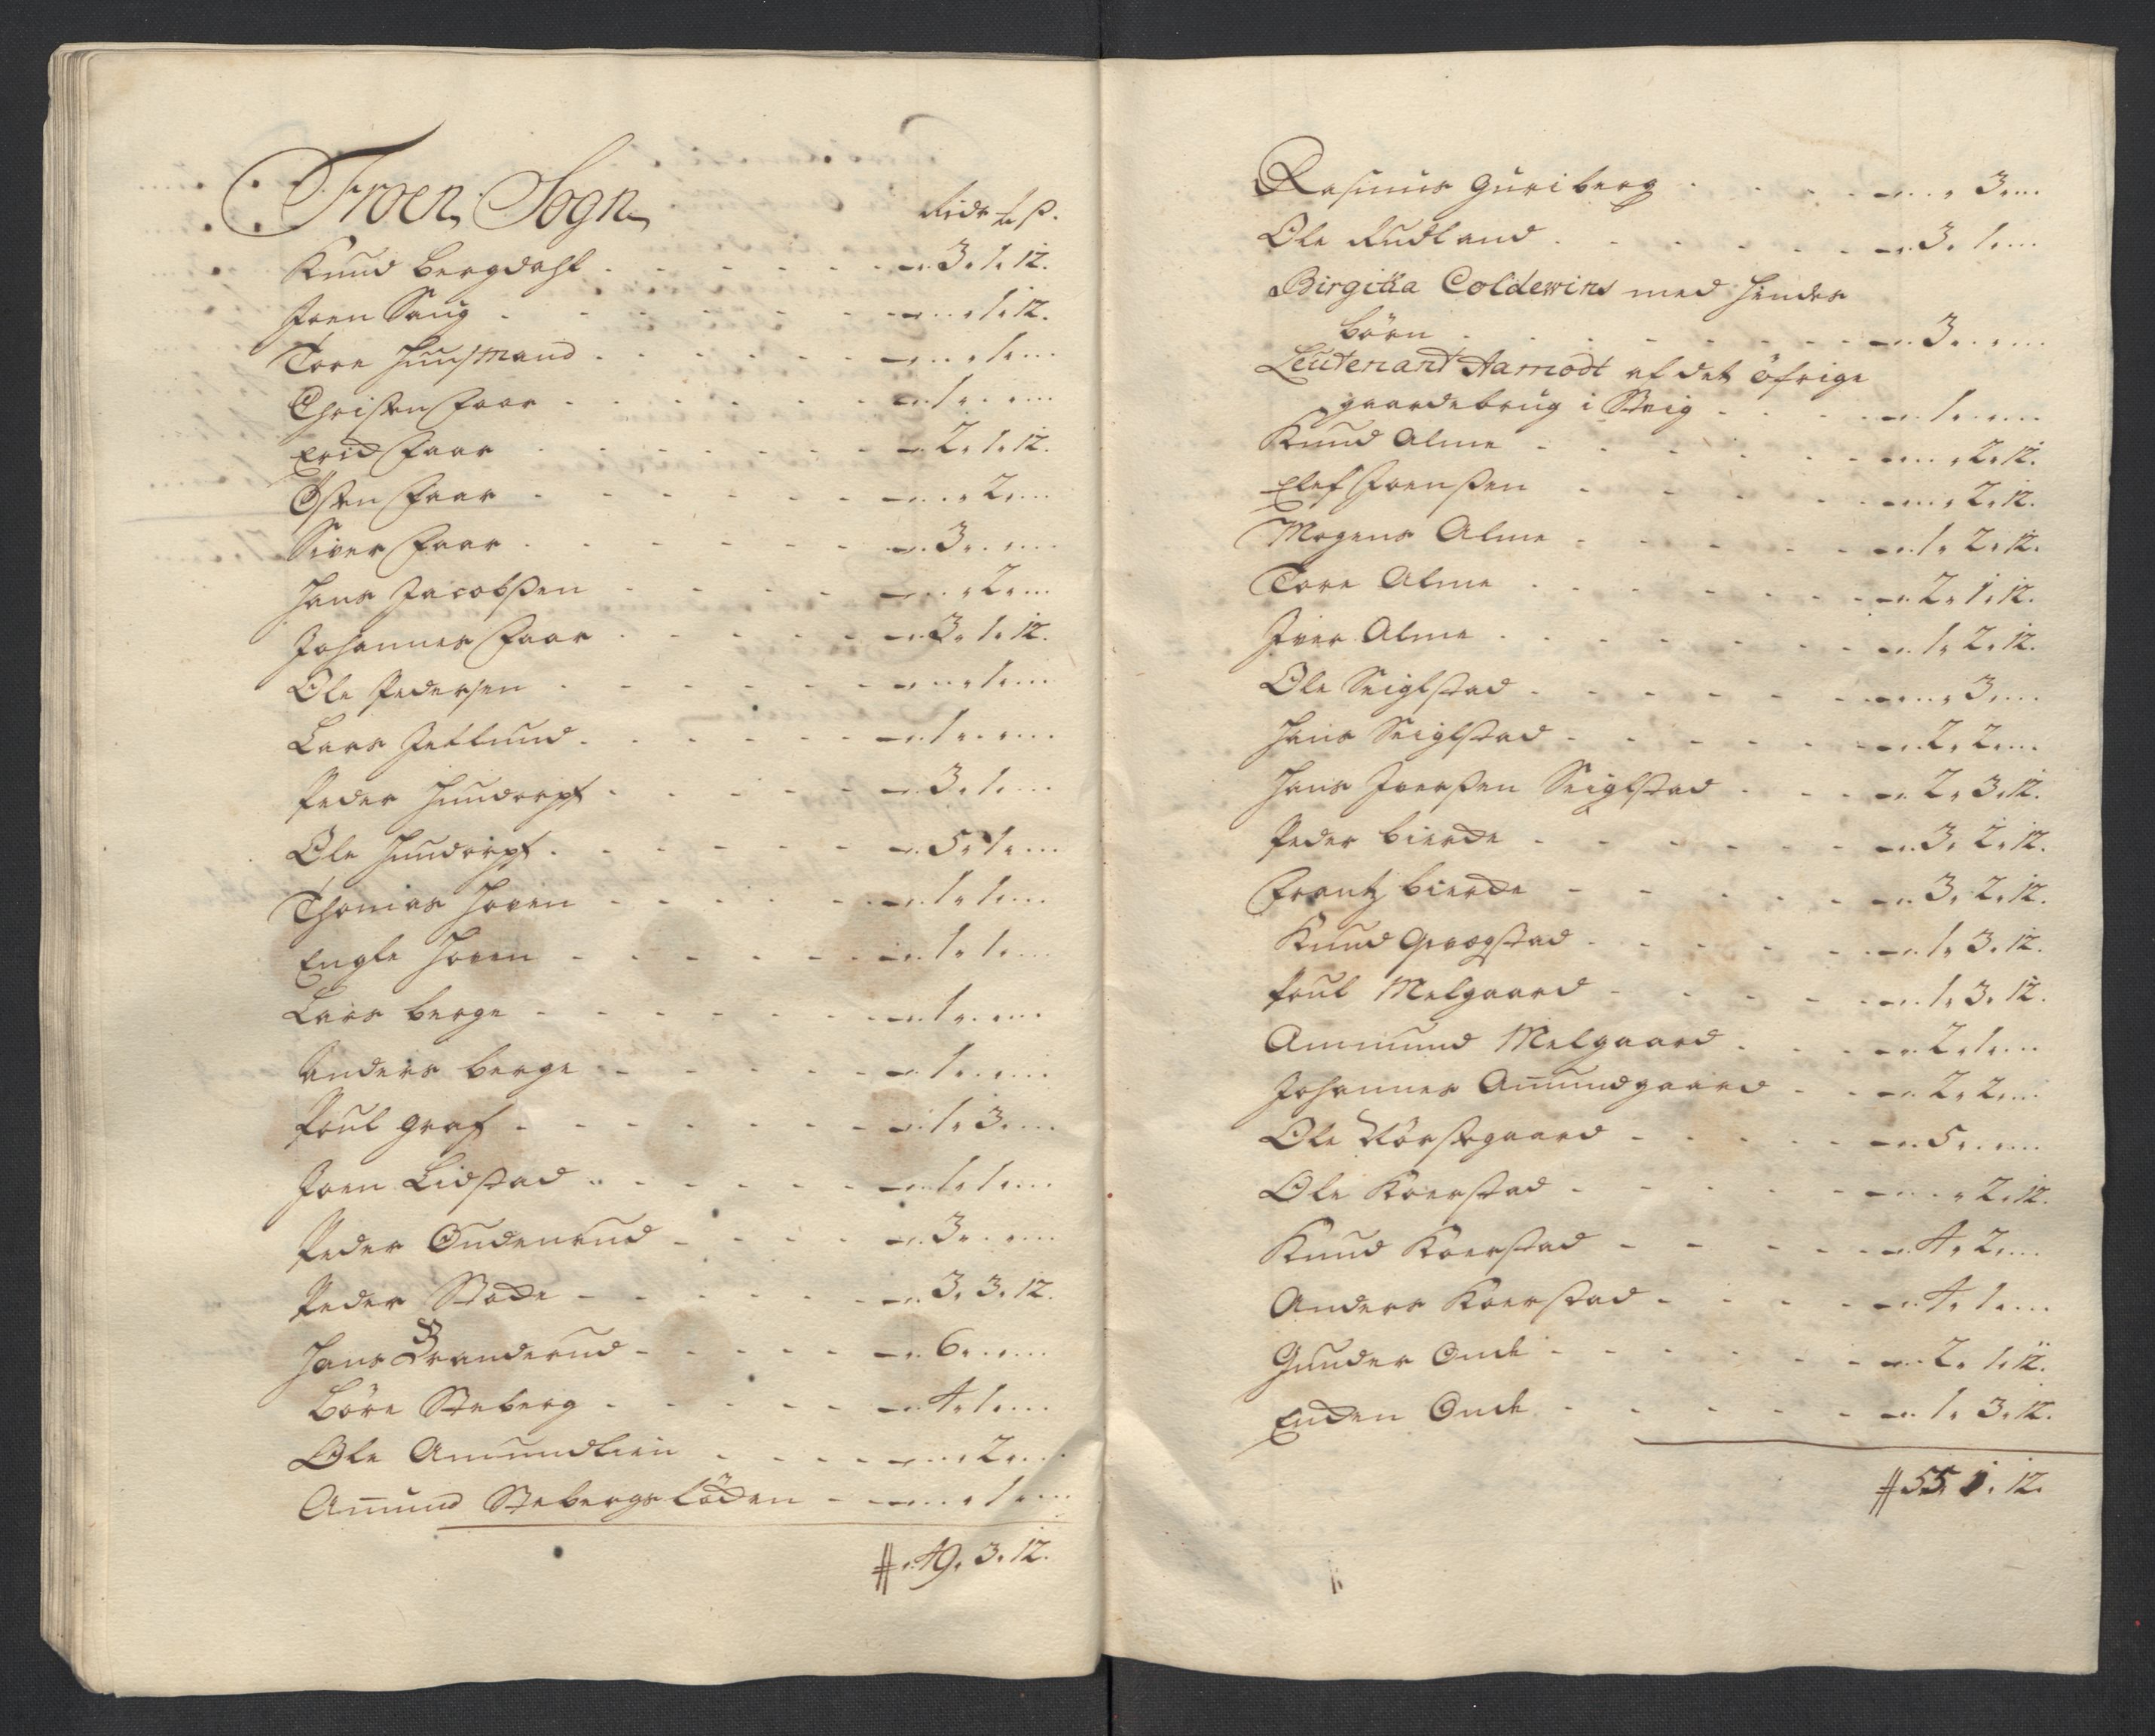 Froen Sogn
Ridr ₰ ß.
Knud Bergdahl . . . . . . 3. 1. 12.
Joen Saug . . . . . . 1. 12.
Tore Huusmand . . . . . . 1.
Christen Faar . . . . . . 1.
Erich Faar . . . . . . 2. 1. 12.
Østen Faar . . . . . . 2.
Siver Faar . . . . . . 3.
Hans Jacobßen . . . . . . 2.
Johannes Faar . . . . . . 3. 1. 12.
Ole Pedersen . . . . . . 1.
Lars Jetlund . . . . . . 1.
Peder Hundorph . . . . . . 3. 1.
Ole Hundorph . . . . . . 5. 1.
Thomas Hoven . . . . . . 1. 1.
Engle Hoven . . . . . . 1. 1.
Lars berge . . . . . . 1.
Anders berge . . . . . . 1.
Poul graf . . . . . . 1. 3.
Joen Lidstad . . . . . . 1. 1.
Peder Oudenrud . . . . . . 3.
Peder Stade . . . . . . 3. 3. 12.
Hans Branderud . . . . . . 6.
Böre Steberg . . . . . . 4. 1.
Ole Amundlien . . . . . . 2.
Amund Stebergslöcken . . . 1.
# 49. 3. 12.
Rasmus Guriberg . . . . . . 3.
Ole Rudland . . . . . . 3. 1.
Birgitta Coldewins med hendes
börn . . . . . . 3.
Leutenant Aamodt af det öfrige
gaardebrug i Steig . . . . 1.
Knud Alme . . . . . . 2. 12.
Elef Joenßen . . . . . . 2. 12.
Mogens Alme . . . . . . 1. 2. 12.
Tore Alme . . . . . . 2. 1. 12.
Iver Alme . . . . . . 1. 2. 12.
Ole Seiglstad . . . . . . 3.
Hans Seiglstad . . . . . . 2. 2.
Hans Iverßen Seiglstad . . . 2. 3. 12.
Peder bierche . . . . . . 3. 2. 12.
Frantz bierche . . . . . . 3. 2. 12.
Knud Grogstad . . . . . . 1. 3. 12.
Poul Melgaard . . . . . . 1. 3. 12.
Ammund Melgaard . . . . 2. 1.
Johannes Amundgaard . . . 2. 2.
Ole Nörstegaard . . . . . . 5.
Ole Koerstad . . . . . . 2. 12.
Knud Koerstad . . . . . . 4. 2.
Anders Koerstad . . . . . . 4. 1.
Gunder Onde . . . . . . 2. 1. 12.
Enden Onde . . . . . . 1. 3. 12.
# 55. 1. 12.